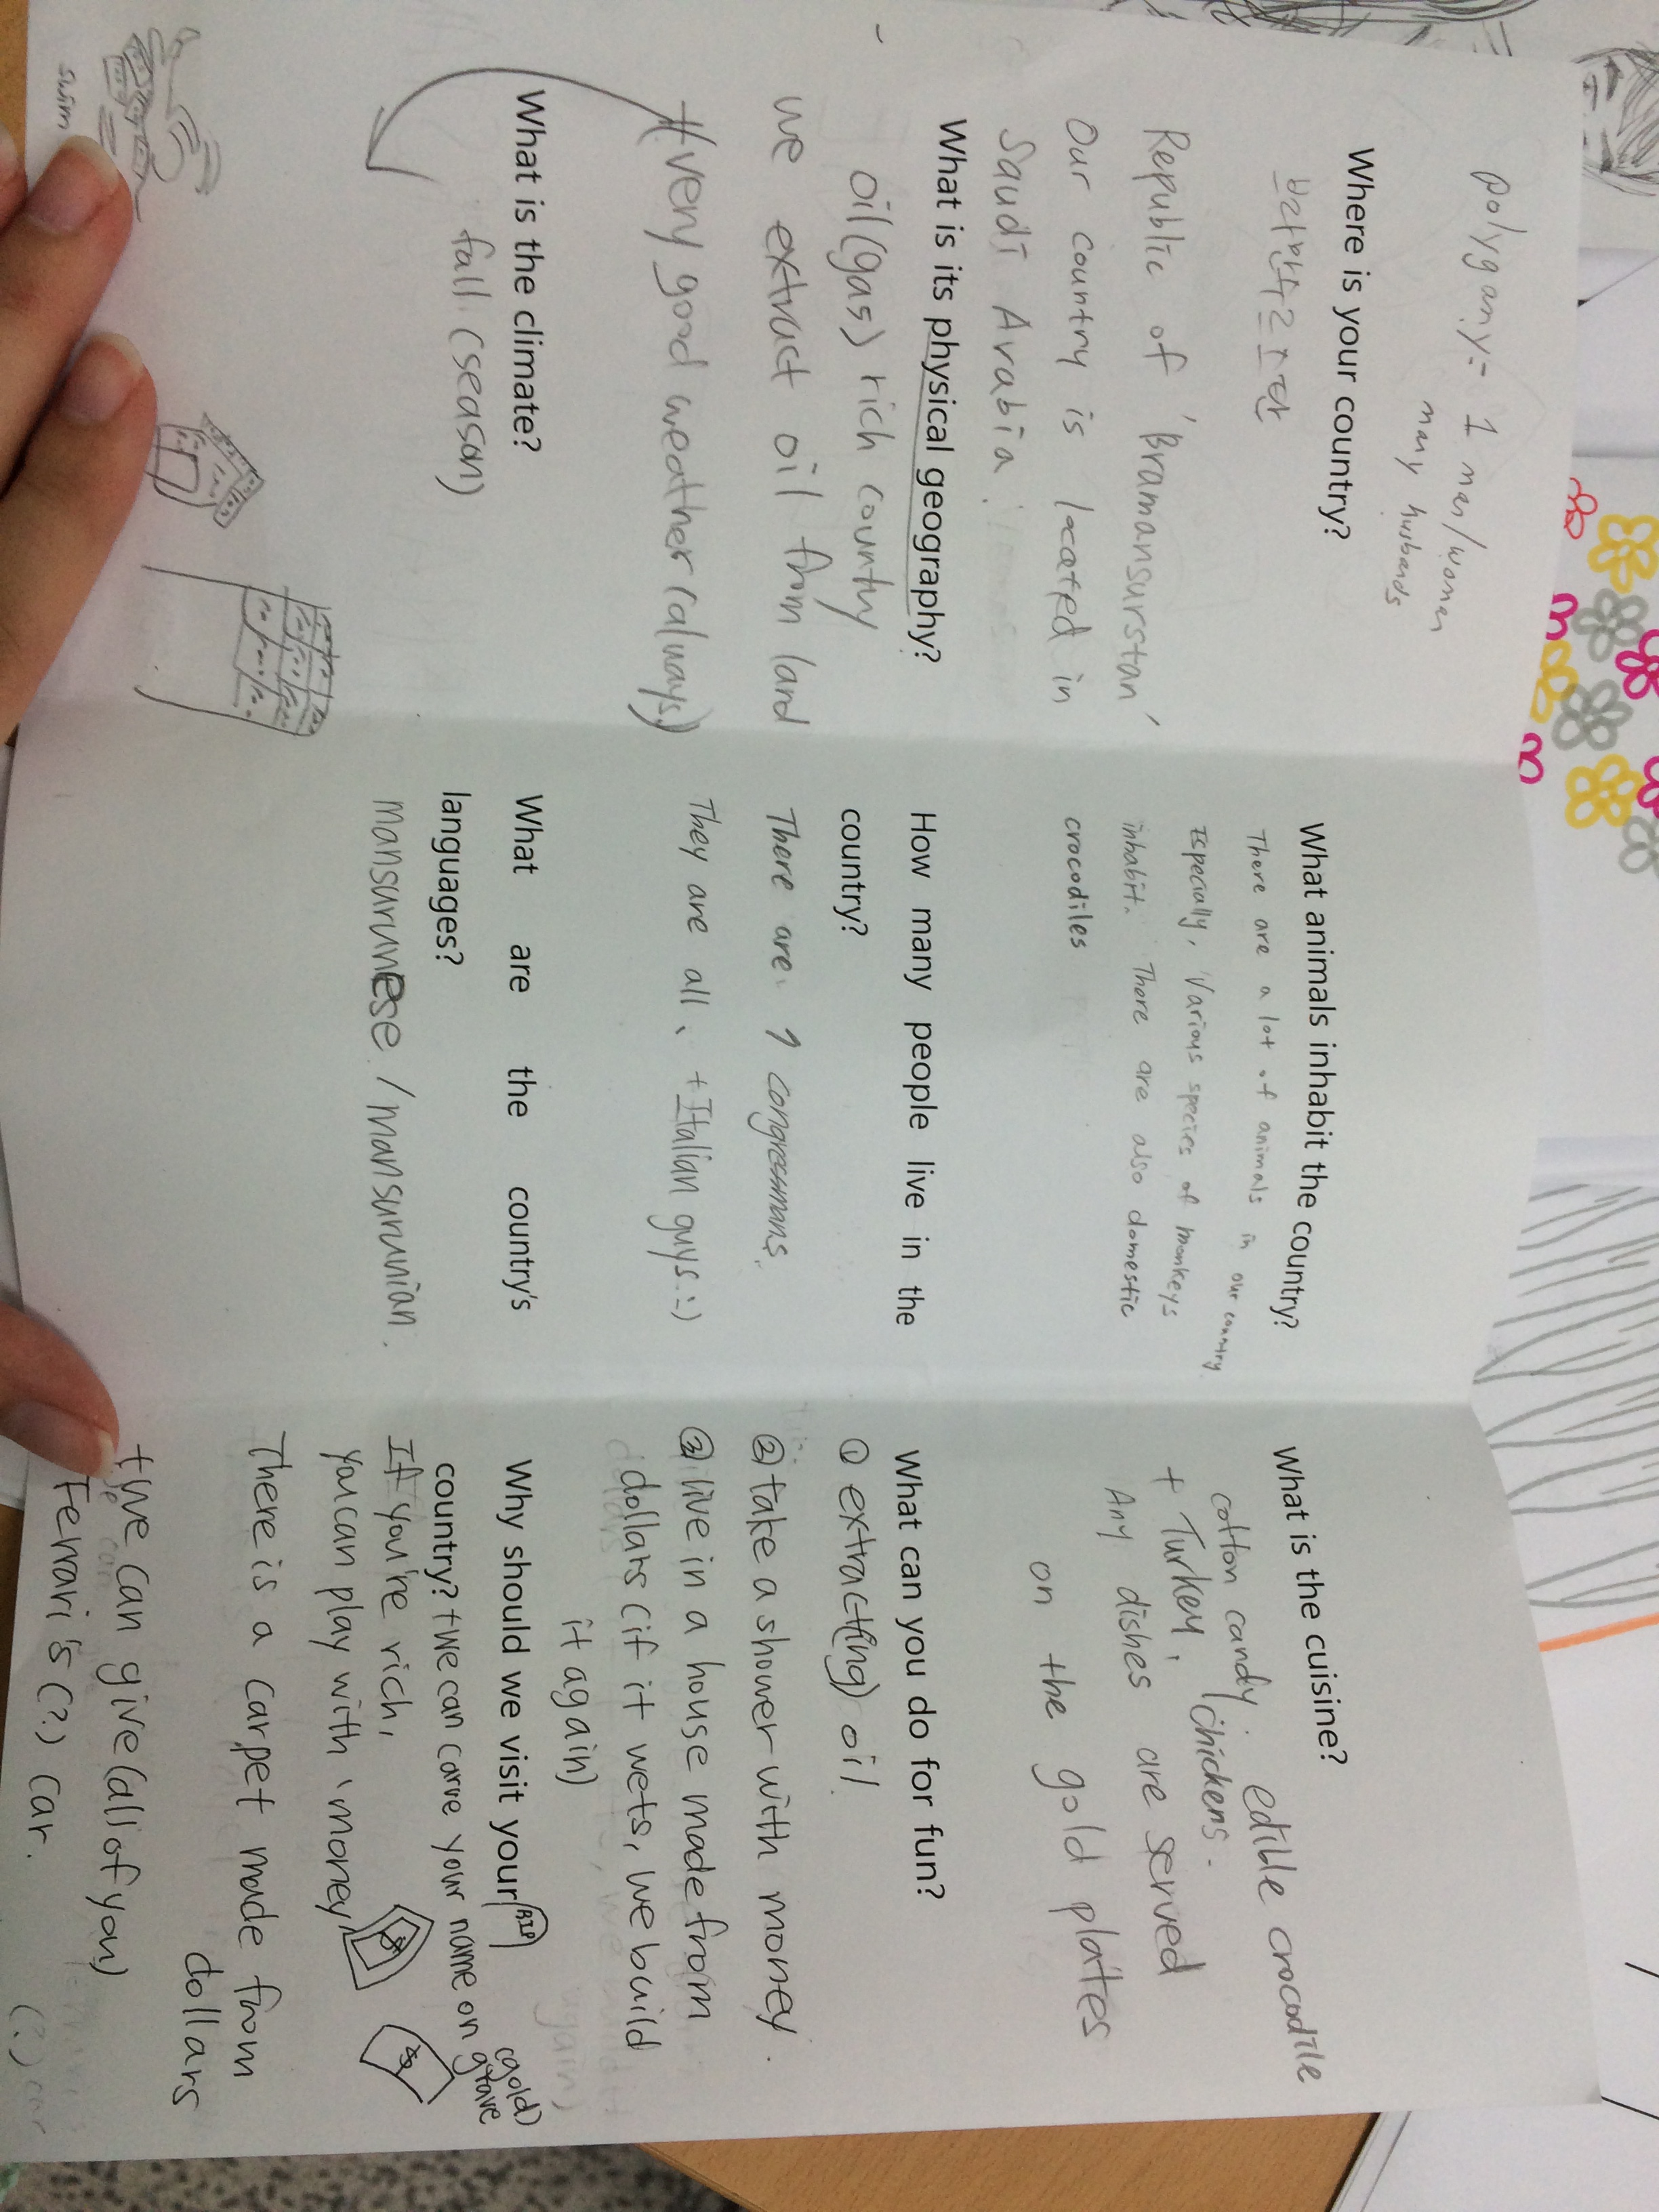 polygamy:- 1 man/women
many husbands
Where is your country?
Republic of 'Bramansurstan'
Our country is located in
Saudi Arabia.
What is its physical geography?
oil(gas) rich country
we extract oil from land
+(very good weather (always)
What is the climate?
fall. (season)
swim
What animals inhabit the country?
There are a lot of animals in our country.
Especially, Various species of monkeys
inhabit. There are also domestic
crocodiles
How many people live in the
country?
There are. 9 congressmans.
They are all, +Italian guys.:-)
What are the country's
languages?
mansurunese / mansurunian.
What is the cuisine?
edible crocodile
cotton candy.
+ Turkey, chickens.
Any dishes are served
on the gold plates
What can you do for fun?
① extract(ing) oil
② take a shower with money.
③ live in a house made from
dollars (if it wets, we build
it again)
Why should we visit your
country? +we can carve your name on (gold)
RIP
If you're rich,
you can play with money
$
$
There is a carpet made from
dollars
+We can give (all of you)
Ferrari's (?) car.